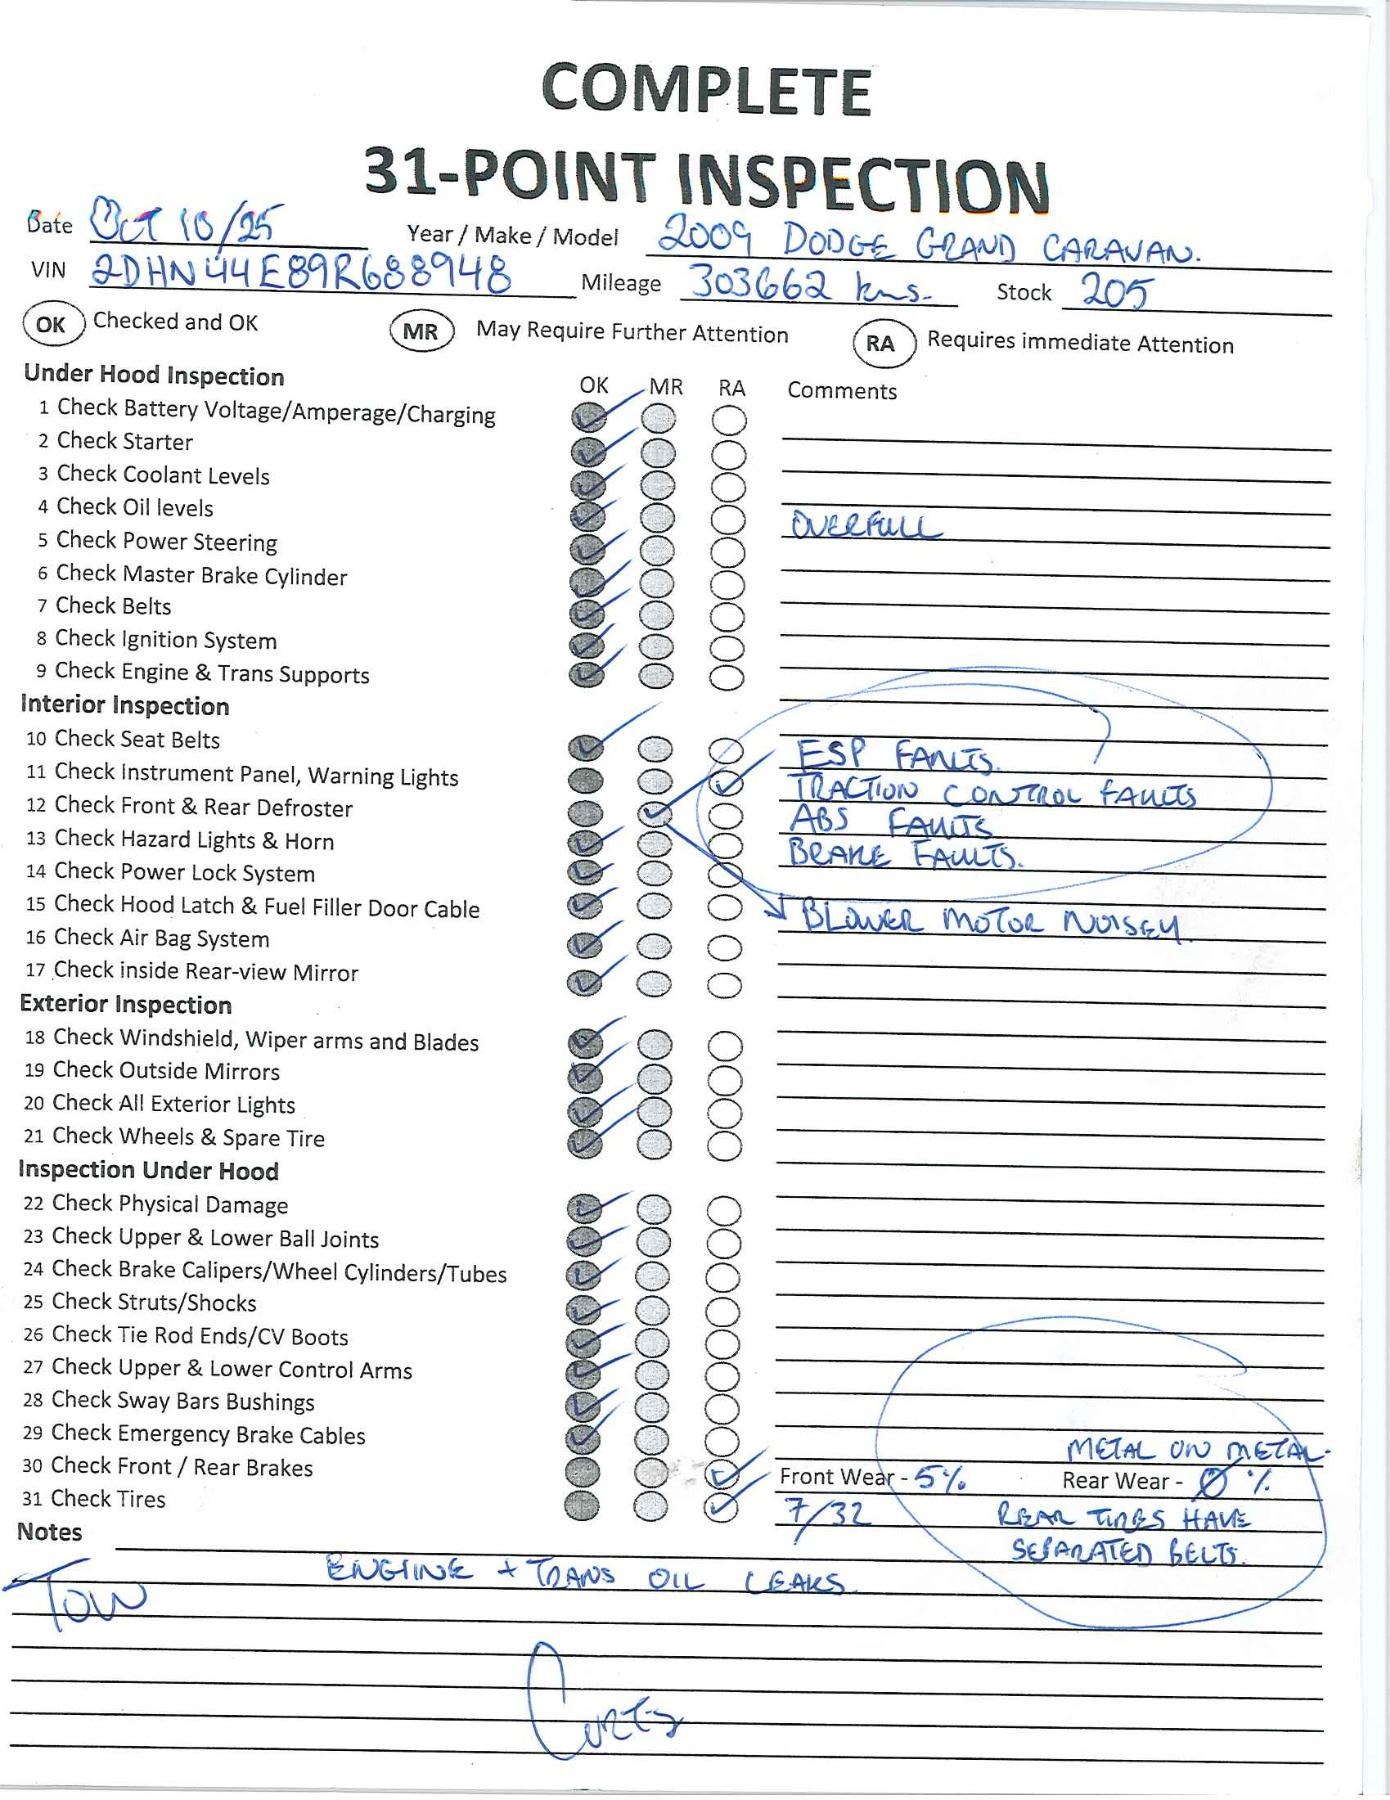 COMPLETE
31-POINT INSPECTION
Date OCT 10/25 Year / Make / Model 2009 DODGE GRAND CARAVAN.
VIN 2DHN44E89R688948 Mileage 303662 kms. Stock 205
OK Checked and OK MR May Require Further Attention RA Requires immediate Attention
Under Hood Inspection OK MR RA Comments
1 Check Battery Voltage/Amperage/Charging
2 Check Starter
3 Check Coolant Levels
4 Check Oil levels OVERFULL
5 Check Power Steering
6 Check Master Brake Cylinder
7 Check Belts
8 Check Ignition System
9 Check Engine & Trans Supports
Interior Inspection
10 Check Seat Belts ESP FAULTS.
11 Check Instrument Panel, Warning Lights TRACTION CONTROL FAULTS
12 Check Front & Rear Defroster ABS FAULTS
13 Check Hazard Lights & Horn BRAKE FAULTS.
14 Check Power Lock System
15 Check Hood Latch & Fuel Filler Door Cable BLOWER MOTOR NOISEY.
16 Check Air Bag System
17 Check inside Rear-view Mirror
Exterior Inspection
18 Check Windshield, Wiper arms and Blades
19 Check Outside Mirrors
20 Check All Exterior Lights
21 Check Wheels & Spare Tire
Inspection Under Hood
22 Check Physical Damage
23 Check Upper & Lower Ball Joints
24 Check Brake Calipers/Wheel Cylinders/Tubes
25 Check Struts/Shocks
26 Check Tie Rod Ends/CV Boots
27 Check Upper & Lower Control Arms
28 Check Sway Bars Bushings
29 Check Emergency Brake Cables METAL ON METAL.
30 Check Front / Rear Brakes Front Wear - 5% Rear Wear - 0 %
31 Check Tires 7/32 REAR TIRES HAVE
Notes SEPARATED BELTS.
ENGINE + TRANS OIL LEAKS.
TOW
CURTS